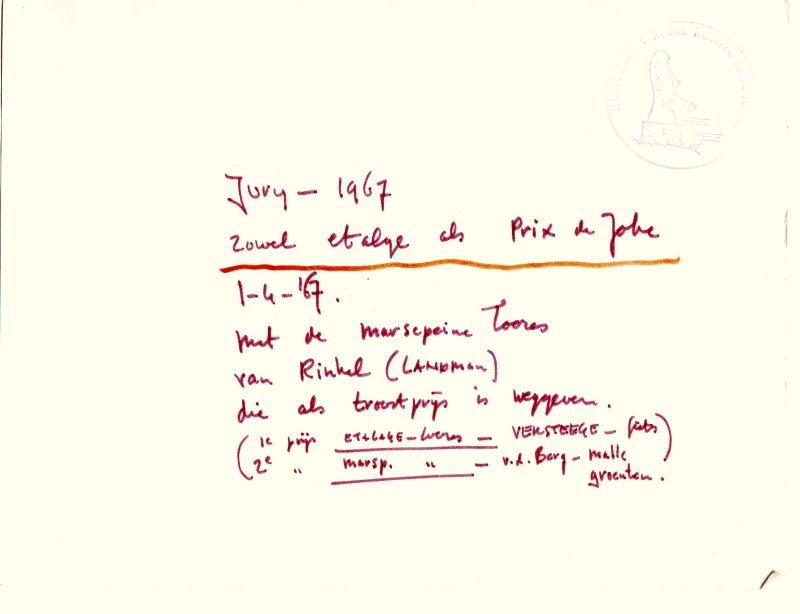 NATIONAAL 1 APRIL KOMITE
Jury - 1967
zowel etalage als Prix de Joke
1-4-'67.
met de marsepeine Loeres
van Rinkel (LANDMAN)
die als troostprijs is weggeven.
(1e prijs ETALAGE-loeres - VERSTEEGE - fiets)
2e " marsp. " - v.d. Berg - malle
groenten.